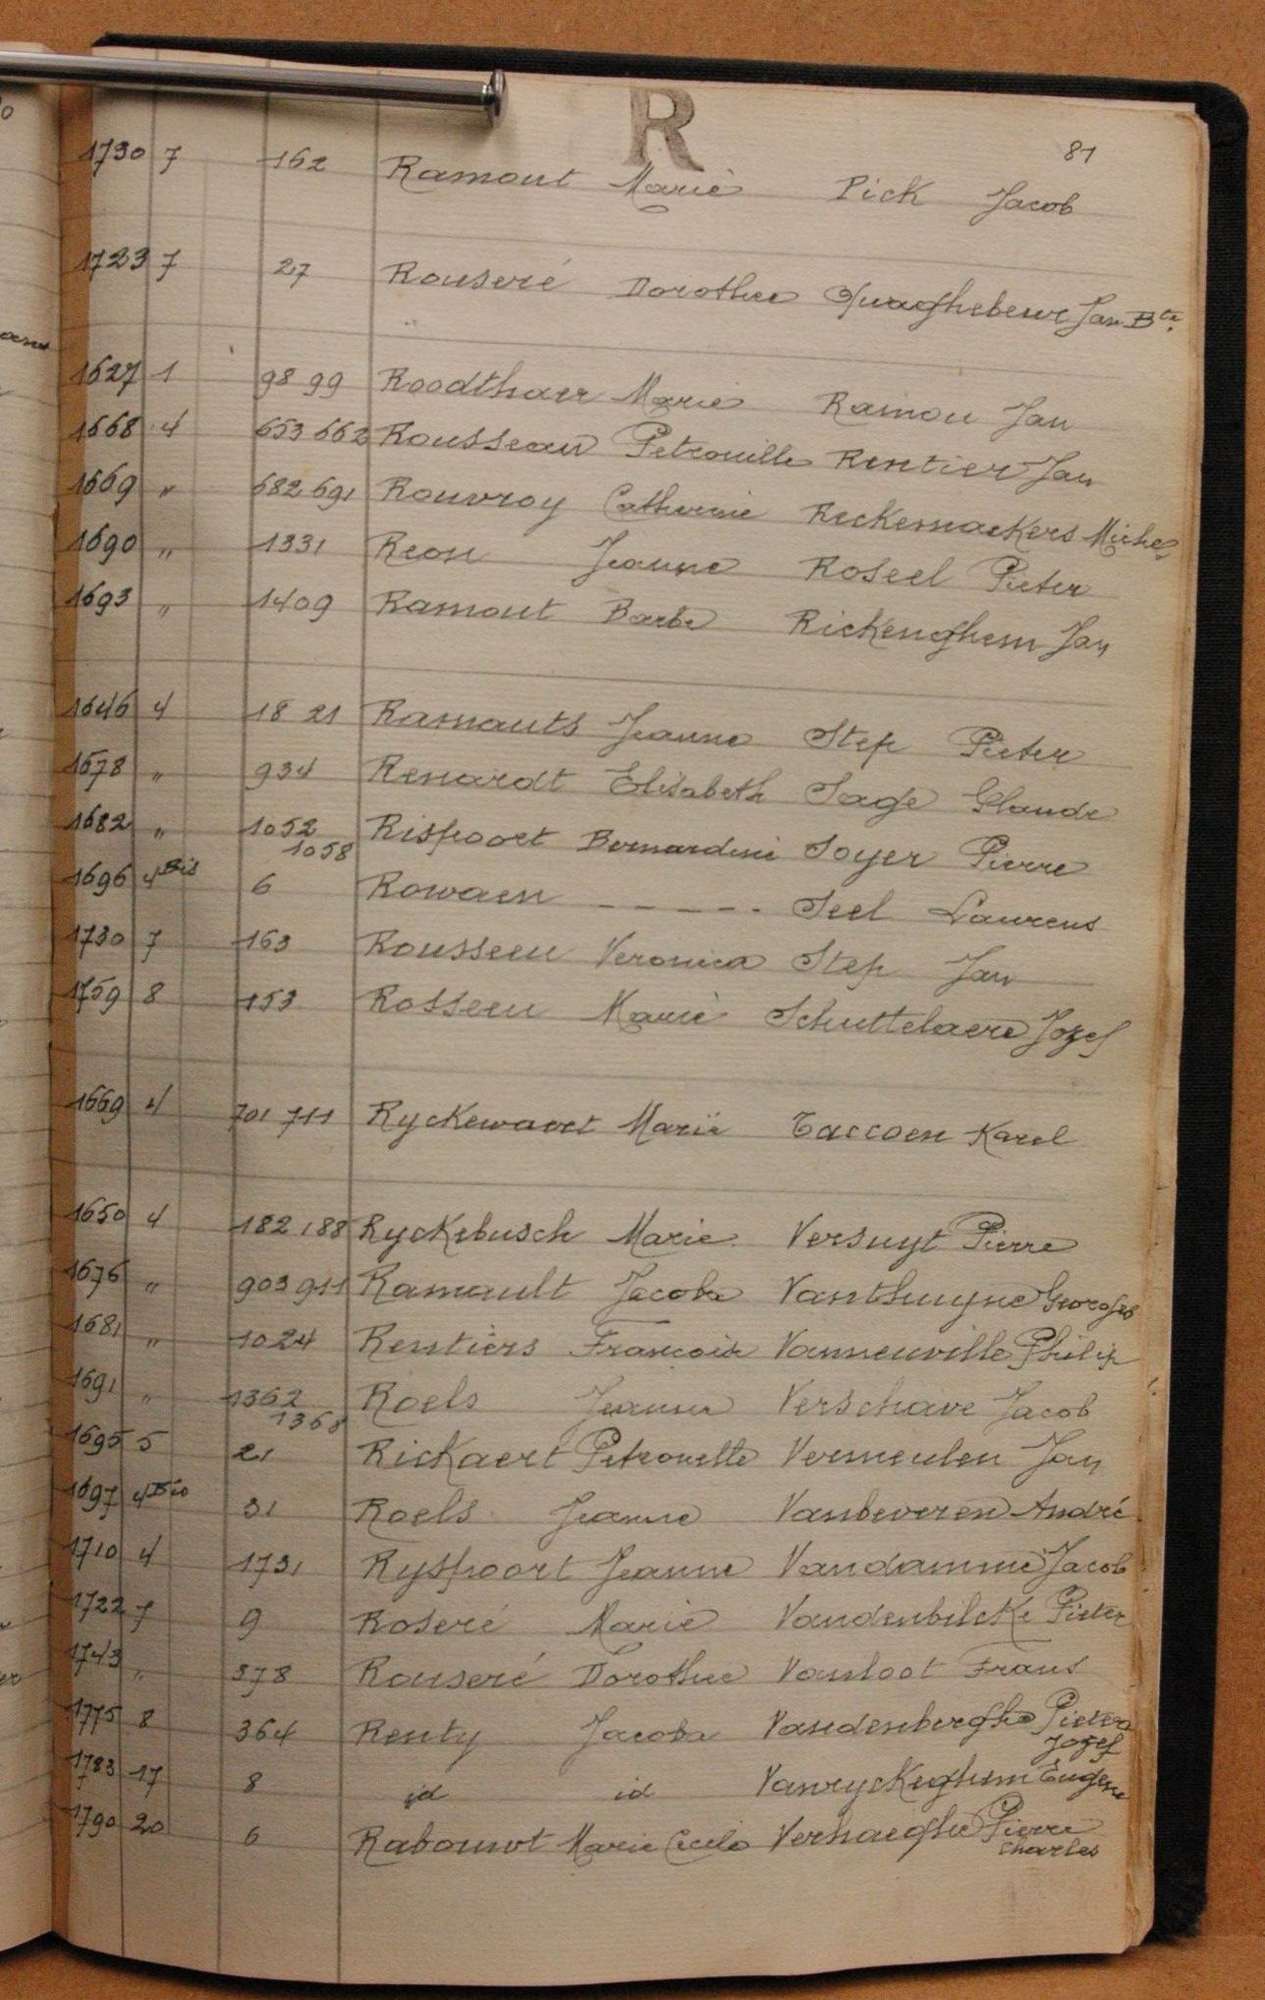 R
81
1730 7 162 Ramout Marie Pick Jacob
1723 7 27 Rouseré Dorothee Quaghebeur Jan Bte
1627 1 98 99 Roodthaer Marie Ramou Jan
1668 4 653 662 Rousseau Petronille Rentier Jan
1669 " 682 691 Rouvroy Catherine Reckemackers Michel
1690 " 1331 Reon Jeanne Roseel Pieter
1693 " 1409 Ramout Barbe Rickenghem Jan
1646 4 18 21 Ramauts Jeanne Step Pieter
1678 " 934 Renardt Elisabeth Sage Glaude
1682 " 1052 Rispoort Bernardine Soyer Pierre
1058
1696 4 Bis 6 Rowaen - - - - - Seel Laurens
1730 7 163 Rousseeu Veronica Step Jan
1759 8 153 Rosseeu Marie Schuttelaere Jozef
1669 4 701 711 Ryckewaert Marie Taccoen Karel
1650 4 182 188 Ryckebusch Marie Versuyt Pierre
1676 " 903 911 Ramault Jacoba Vanthuyne Georges
1681 " 1024 Rentiers Francoise Vanneuville Philip
1691 " 1362 Roels Jeanne Verschave Jacob
1368
1695 5 21 Rickaert Petronelle Vermeulen Jan
1697 4 Bis 31 Roels Jeanne Vanbeveren André
1710 4 1731 Ryspoort Jeanne Vandamme Jacob
1722 7 9 Roseré Marie Vandenbilcke Pieter
1743 " 378 Rouseré Dorothee Vanloot Frans
1775 8 364 Renty Jacoba Vandenberghe Pieter
Jozef
1783 17 8 id id Vanryckeghem Eugene
1790 20 6 Rabouwt Marie Cecile Vernaeghe Pierre
Charles